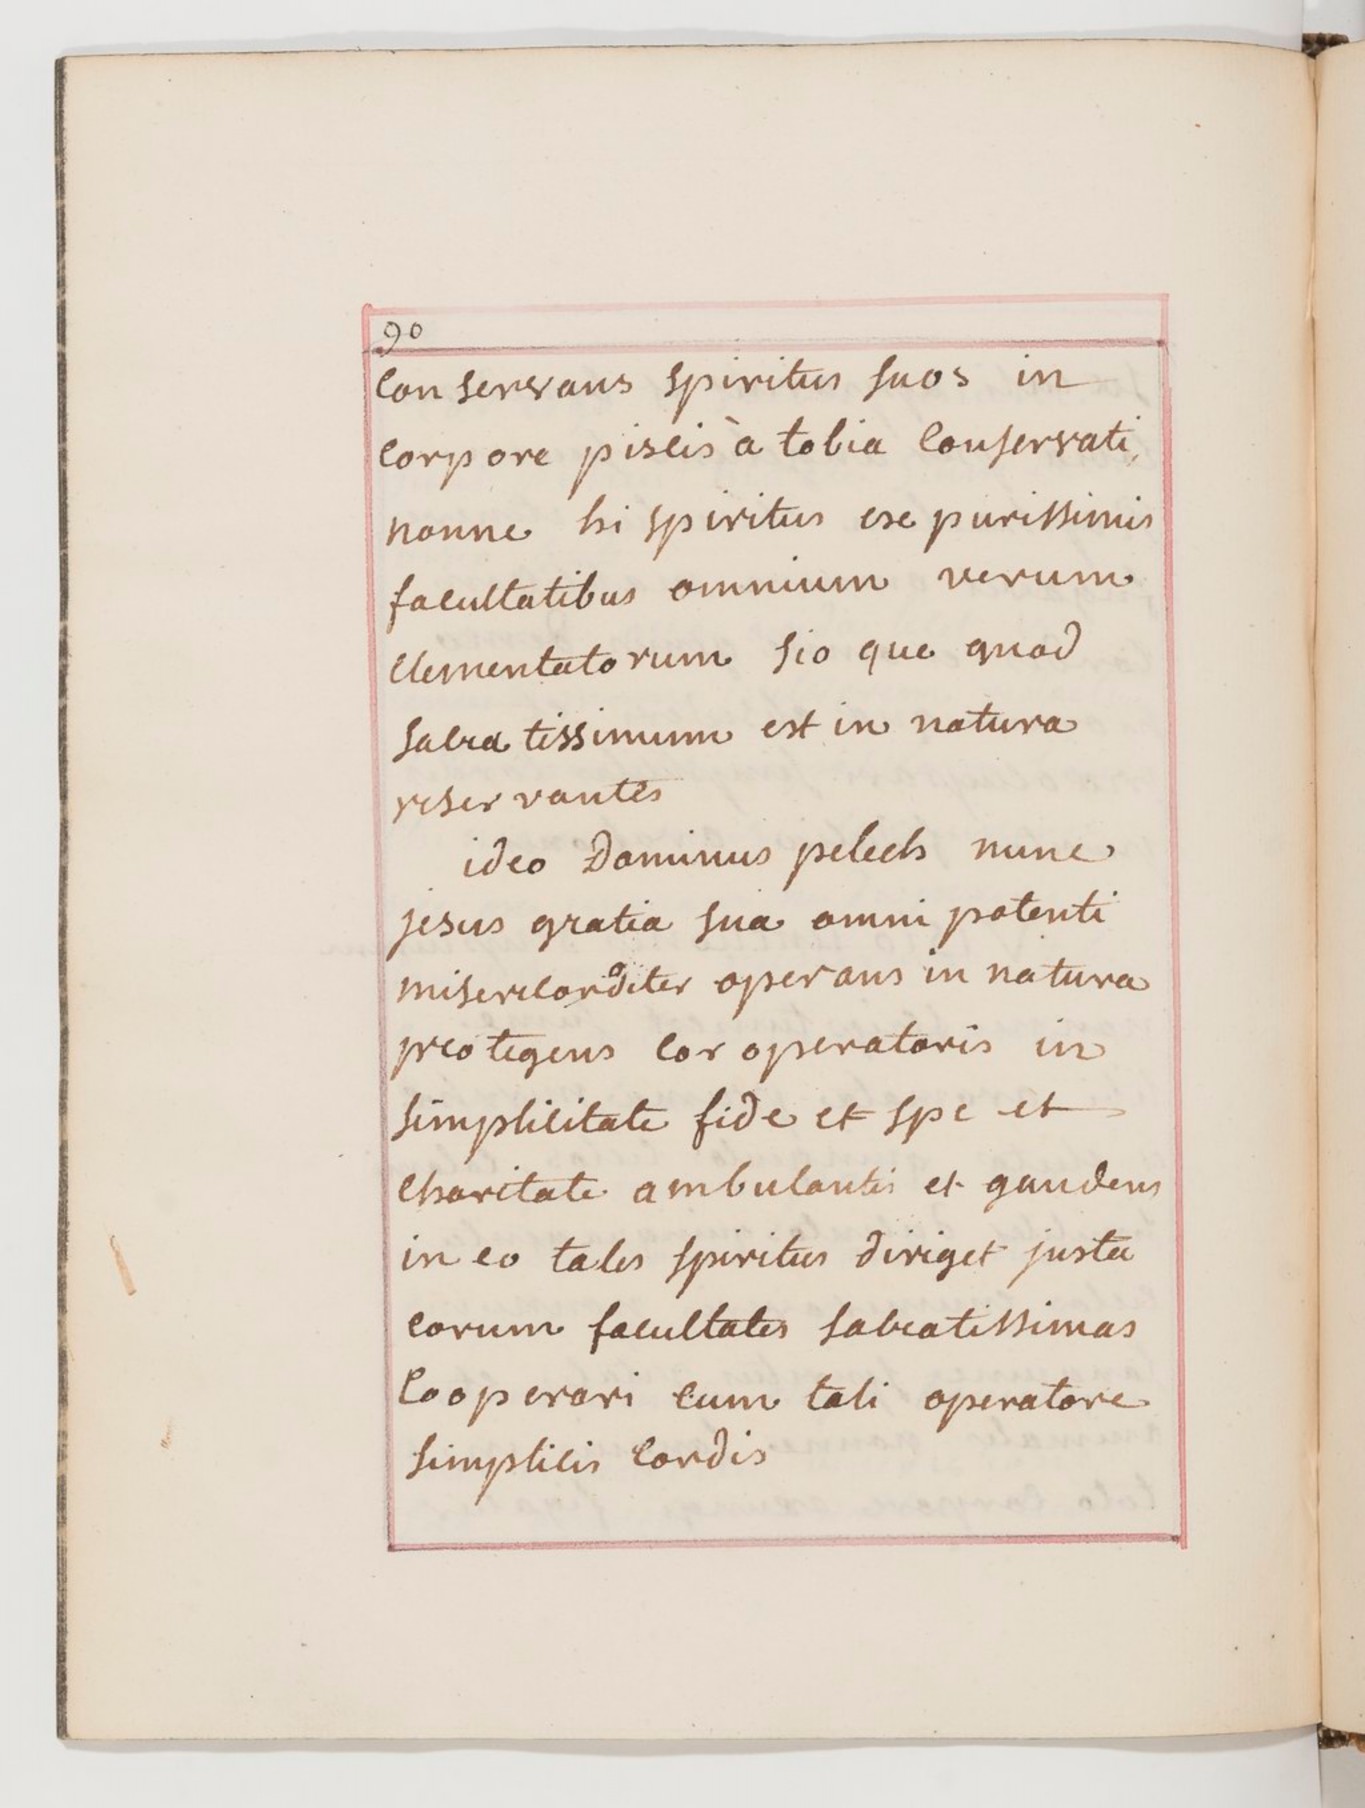 90
conservans spiritus suos in
corpore piscis à tobia conservati,
nonne hi spiritus exe purissimis
facultatibus omnium verum
elementatorum sio que quod
sacra tissimum est in natura
reservantes
ideo Dominus pelech nunc
jesus gratia sua omni potenti
misericorditer operans in natura
protegens cor operatoris in
simplicitate fide et spe et
charitate ambulantis et gaudens
in eo tales spiritus diriget justa
eorum facultates sacratissimas
cooperari cum tali operatore
simplicis cordis